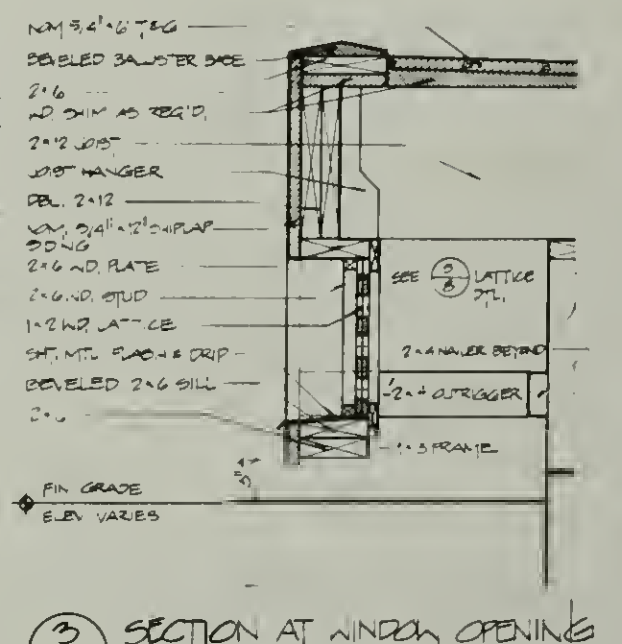 NOM 5/4"×6" T&G
BEVELED BALUSTER BASE
2×6
WD. SHIM AS REQ'D.
2×12 JOIST
JOIST HANGER
DBL. 2×12
NOM. 3/4"×12" SHIPLAP
SIDING
2×6 WD. PLATE
2×6 WD. STUD
1×2 WD. LATTICE
SHT. MTL. FLASH & DRIP
BEVELED 2×6 SILL
2×6
SEE LATTICE
DTL.
2×4 NAILER BEYOND
2×4 OUTRIGGER
1×3 FRAME
FIN GRADE
ELEV VARIES
3 SECTION AT WINDOW OPENING